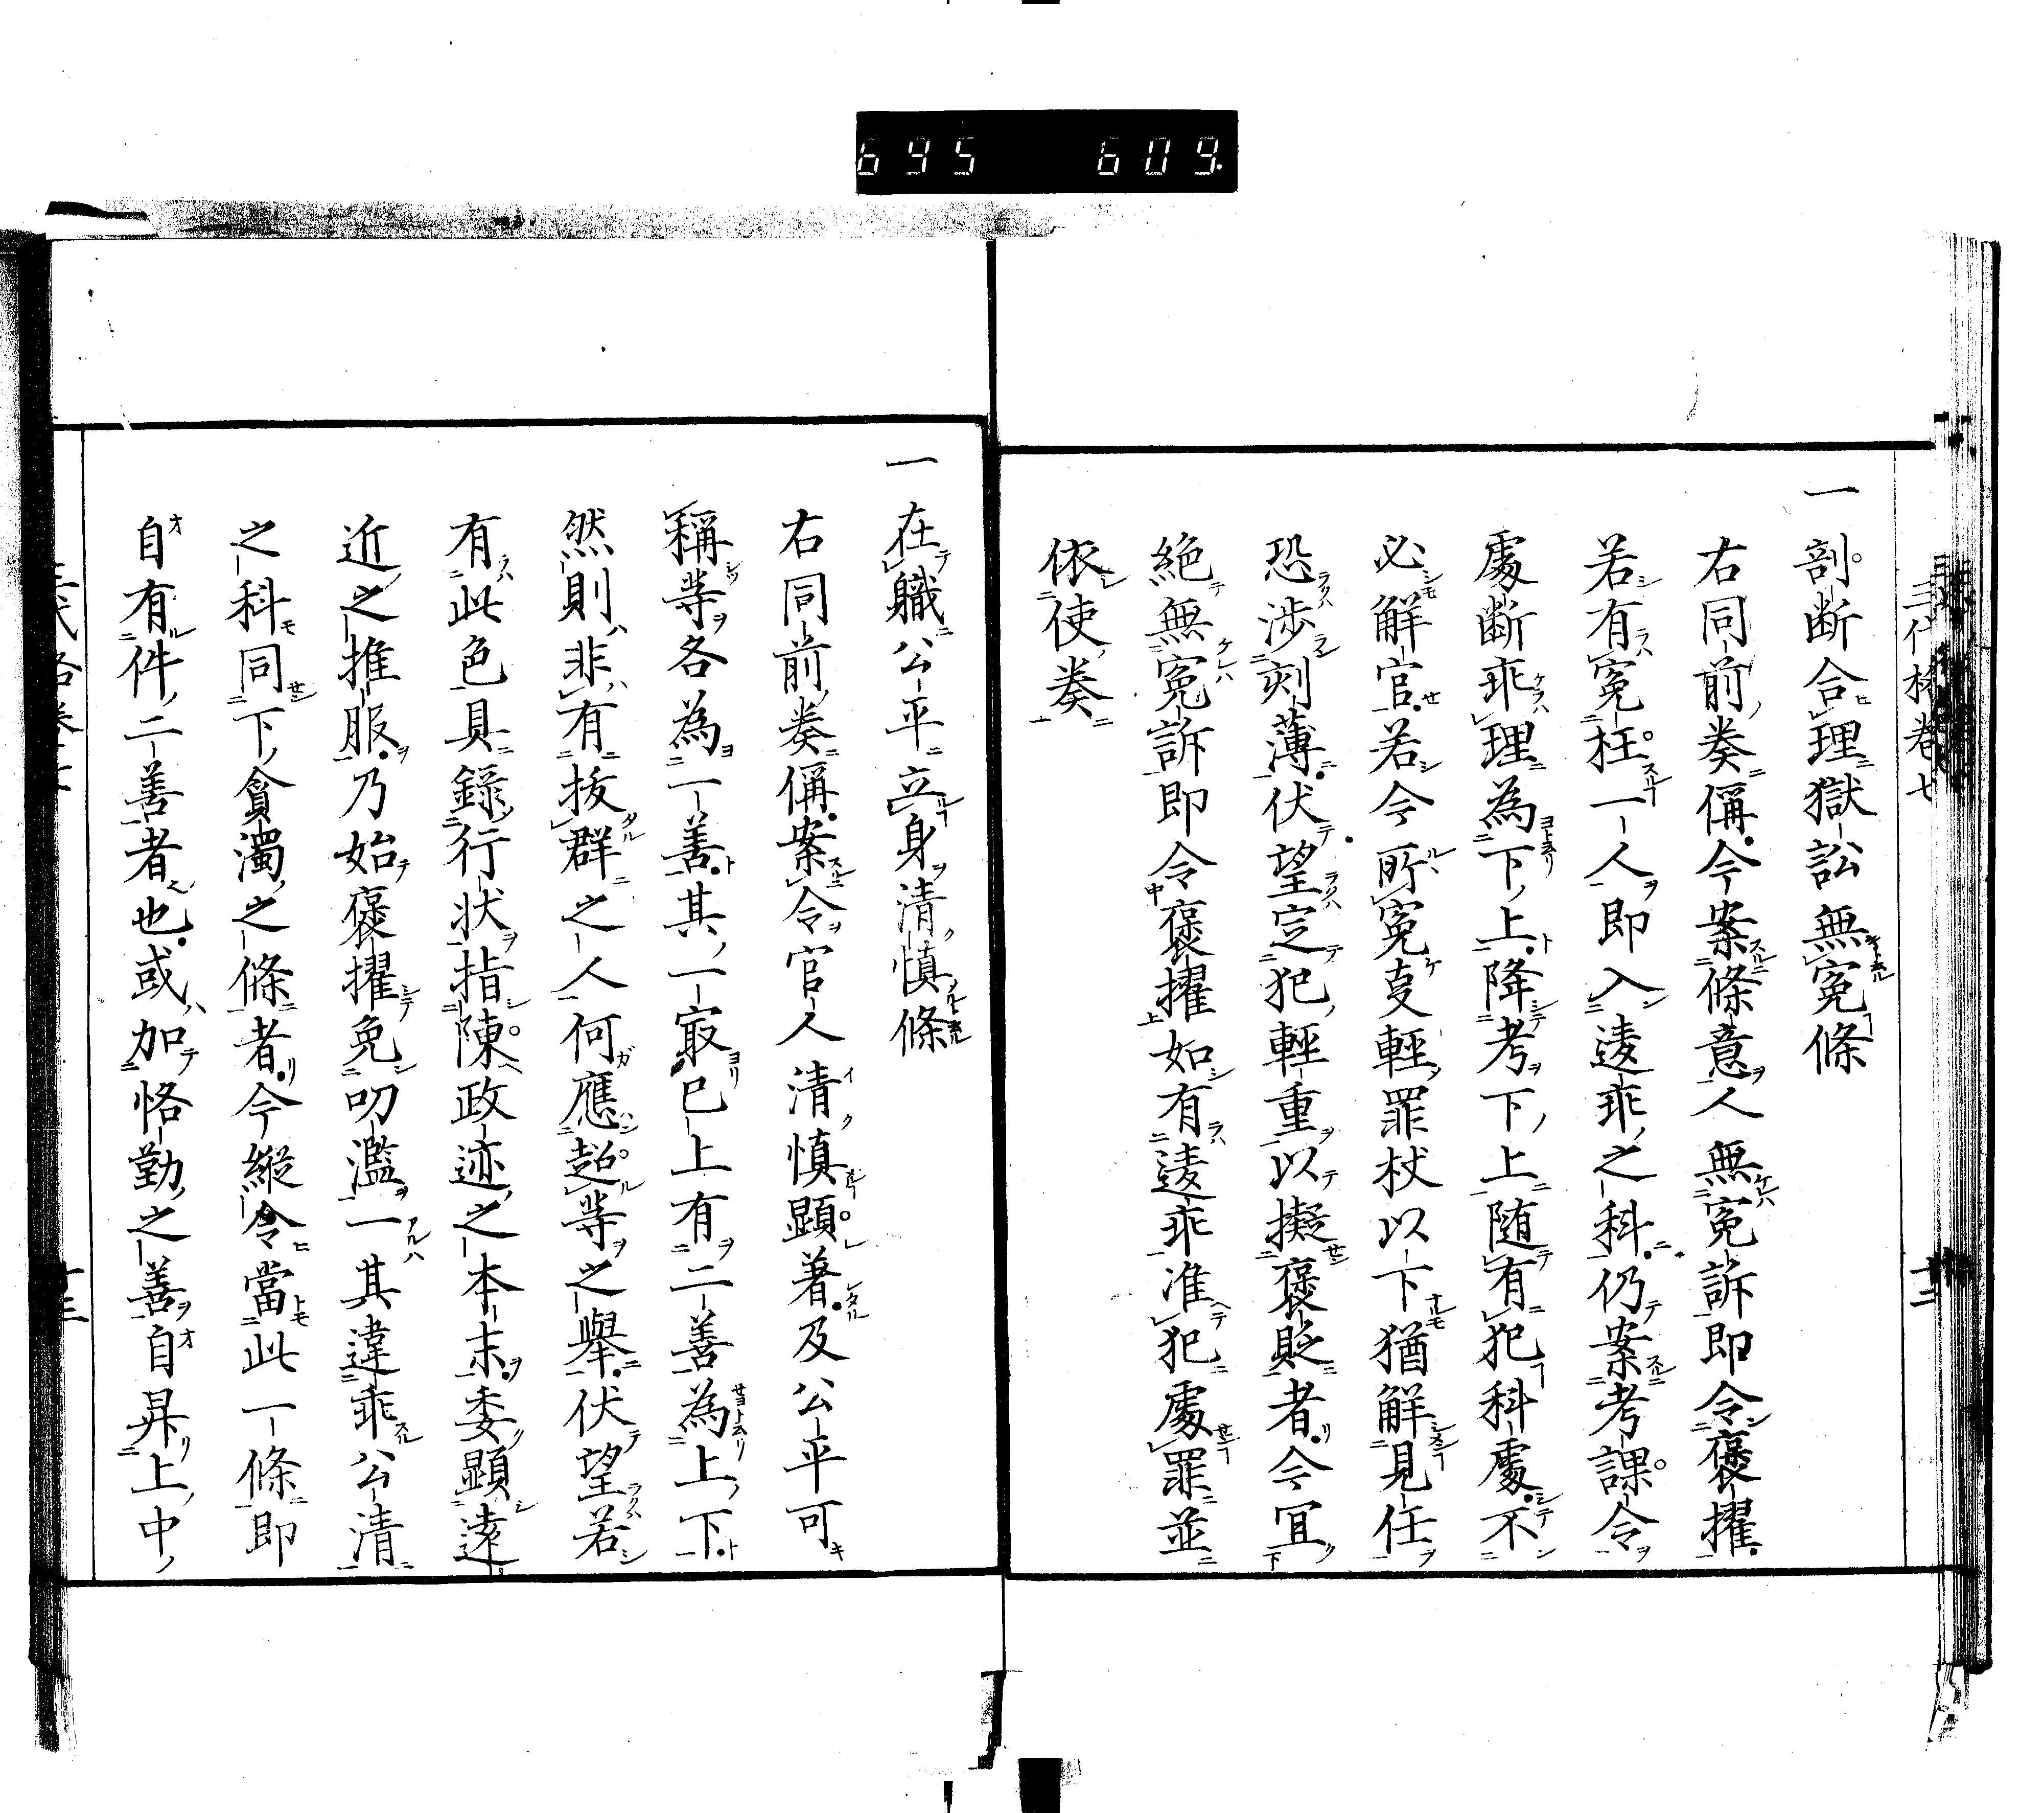 695 609
三代格巻七
十二
一剖断合理獄訟無寃條
右同前奏偁今案條意人無寃訴即令褒擢
若有寃枉一人即入逺乖之科仍案考課令
處断乖理為下上降考下上随有犯科處不
必解官若今所寃叓輕罪杖以下猶解見任
恐渉刻薄伏望定犯輕重以擬褒貶者令冝
絶無寃訴即令褒擢如有逺乖准犯處罪並
依使奏
一在職公平立身清慎條
右同前奏偁案令官人清慎顕著及公平可
稱等各為一善其一㝡已上有二善為上下
然則非有抜群之人何應超等之舉伏望若
有此色具錄行状指陳政迹之本末委顕逺
近之推服乃始褒擢免叨濫一其違乖公清
之科同下貪濁之條者今縦令當此一條即
自有件二善者也或加恪勤之善自昇上中
十三